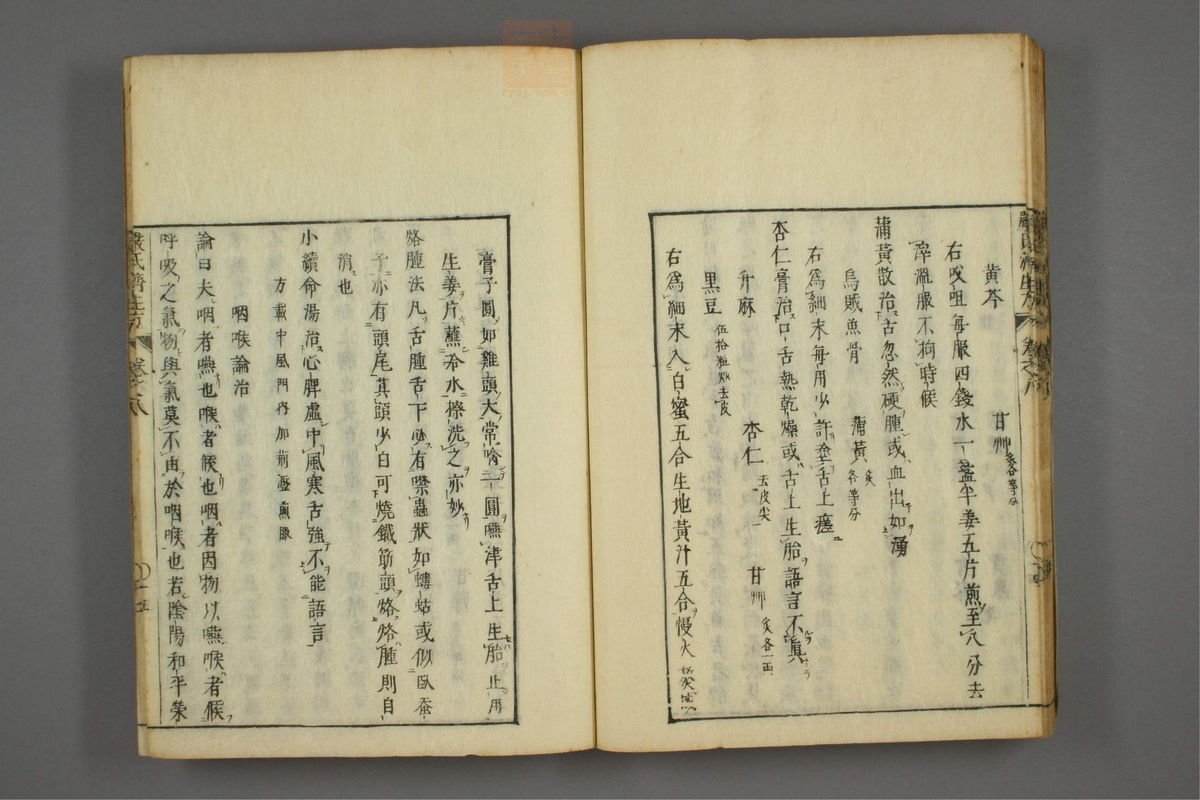 黄芩　甘艸 炙各等分
右㕮咀毎服四錢水一盞半姜五片煎至八分去
滓温服不拘時候
蒲黄散治舌忽然硬腫或血出如湧
烏賊魚骨　蒲黄 炙各等分
右爲細末毎用少許塗舌上瘥
杏仁膏治口舌熱乾燥或舌上生胎語言不真
升麻
黒豆 伍拾粒炒去皮　杏仁 去皮尖一　甘艸 炙各一両
右爲細末入白蜜五合生地黄汁五合慢火
膏子圓如雞頭大常噙一圓嚥津舌上生胎止用
生姜片蘸冷水擦洗之亦妙
烙腫法凡舌腫舌下必有噤蟲狀如螻蛄或似臥蚕
子亦有頭尾其頭少白可燒鐵筯頭烙烙腫則自
消也
小續命湯治心脾虚中風寒舌強不能語言
方載中風門内加荊瀝煎服
咽喉論治
論曰夫咽者嚥也喉者候也咽者因物以嚥喉者候
呼吸之氣物與氣莫不由於咽喉也若陰陽和平榮
嚴氏濟生方　卷之八　十五